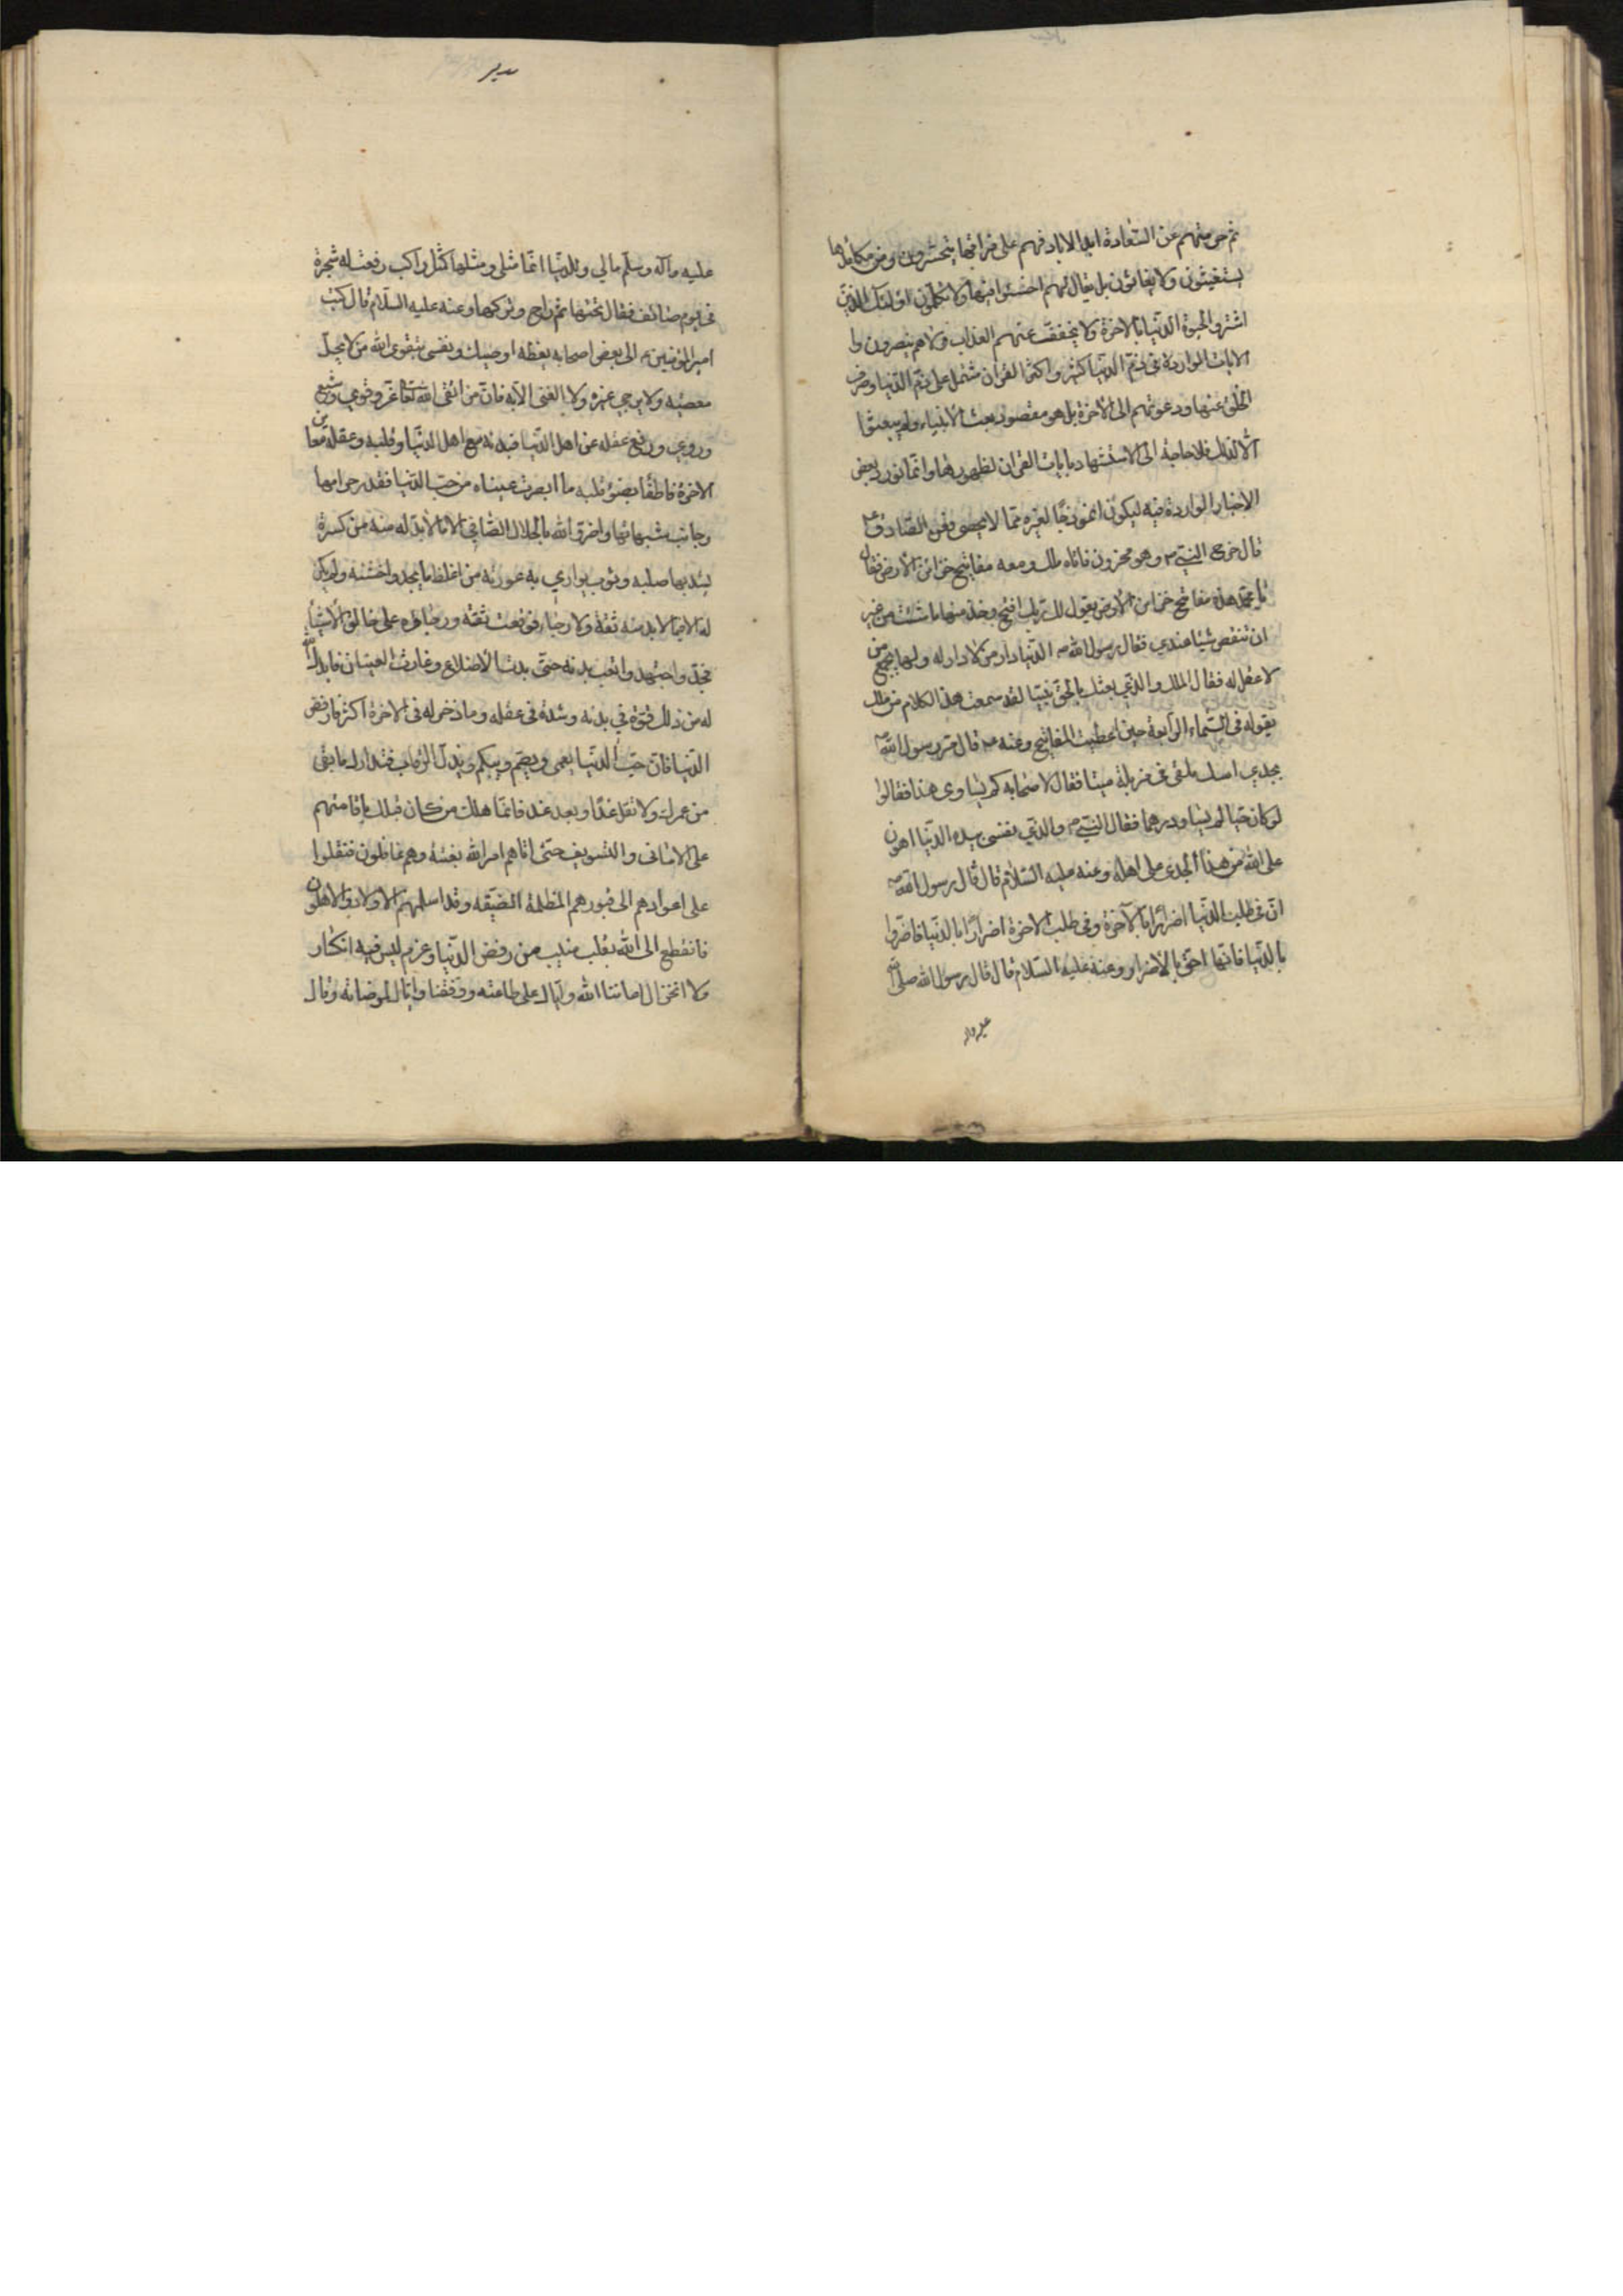 ثم حرمتهم عن السعادة ابد الاباد فهم على فراقها يتحسرون ومن مكايدها
يستغيثون ولا يغاثون بل يقال لهم اخسئوا فيها ولا تكلمون اولئك الذين
اشتروا الحيوة الدنيا بالاخرة ولا يخفف عنهم العذاب ولا هم ينصرون وا
الايات الواردة فى ذم الدنيا كثيرة واكثر القران مشتمل على ذم الدنيا وصرف
الخلق عنها ودعوتهم الى الاخرة بل هو مقصود بعث الانبياء ولم يبعثوا
الا لذلك فلا حاجة الى الاستشهاد بايات القران لظهورها وانما نورد بعض
الاخبار الواردة فيه ليكون انموذجا لغيره مما لا يحصى فعن الصادق ع
قال خرج النبي ص وهو محزون فاتاه ملك ومعه مفاتيح خزائن الارض فقال
يا محمد هذه مفاتيح خزائن الارض يقول لك ربك افتح وخذ منها ما شئت من غير
ان تنقص شيا عندي فقال رسول الله ص الدنيا دار من لا دار له ولها يجمع من
لا عقل له فقال الملك والذي بعثك بالحق نبيا لقد سمعت هذا الكلام من ملك
يقوله فى السماء الرابعة حين اعطيت المفاتيح وعنه ع قال مر رسول الله ص
بجدي اسك ملقى فى مزبلة ميتا فقال لاصحابه كم يساوى هذا فقالوا
لو كان حيا لم يساو درهما فقال النبي ص والذي نفسى بيده الدنيا اهون
على الله من هذا الجدى على اهله وعنه عليه السلام قال قال رسول الله ص
ان فى طلب الدنيا اضرارا بالآخرة وفى طلب الاخرة اضرارا بالدنيا فاضروا
بالدنيا فانها احق بالاضرار وعنه عليه السلام قال قال رسول الله صلى الله
عليه وآله
عليه وآله وسلم مالي وللدنيا انما مثلى ومثلها كمثل راكب رفعت له شجرة
فى يوم صائف فقال تحتها ثم راح وتركها وعنه عليه السلام قال كتب
امير المؤمنين ع الى بعض اصحابه يعظه اوصيك ونفسى بتقوى الله من لا تحل
معصيته ولا يرجى غيره ولا الغنى الا به فان من اتقى الله تعالى عز وقوي وشبع
وروي ورفع عقله عن اهل الدنيا فبدنه مع اهل الدنيا وقلبه وعقله معاين
الاخرة فاطفأ بضوء قلبه ما ابصرت عيناه من حب الدنيا فقذر حرامها
وجانب شبهاتها واضر والله بالحلال الصافي الا ما لا بد له منه من كسرة
يشد بها صلبه وثوب يواري به عورته من اغلظ ما يجد واخشنه ولم يكن
له فيما لا بد منه ثقة ولا رجاء فوقعت ثقته ورجاؤه على خالق الاشياء
فجد واجتهد واتعب بدنه حتى بدت الاضلاع وغارت العينان فابدل الله
له من ذلك قوة في بدنه وشدة فى عقله وما ذخر له فى الاخرة اكثر فارفض
الدنيا فان حب الدنيا يعمى ويصم ويبكم ويذل الرقاب فتدارك ما بقى
من عمرك ولا تقل غدا وبعد غد فانما هلك من كان قبلك باقامتهم
على الامانى والتسويف حتى اتاهم امر الله بغتة وهم غافلون فنقلوا
على اعوادهم الى قبورهم المظلمة الضيقه وقد اسلمهم الاولاد والاهلون
فانقطع الى الله بقلب منيب من رفض الدنيا وعزم ليس فيه انكسار
ولا انخزال اعاننا الله واياك على طاعته ووفقنا واياك لمرضاته وقال